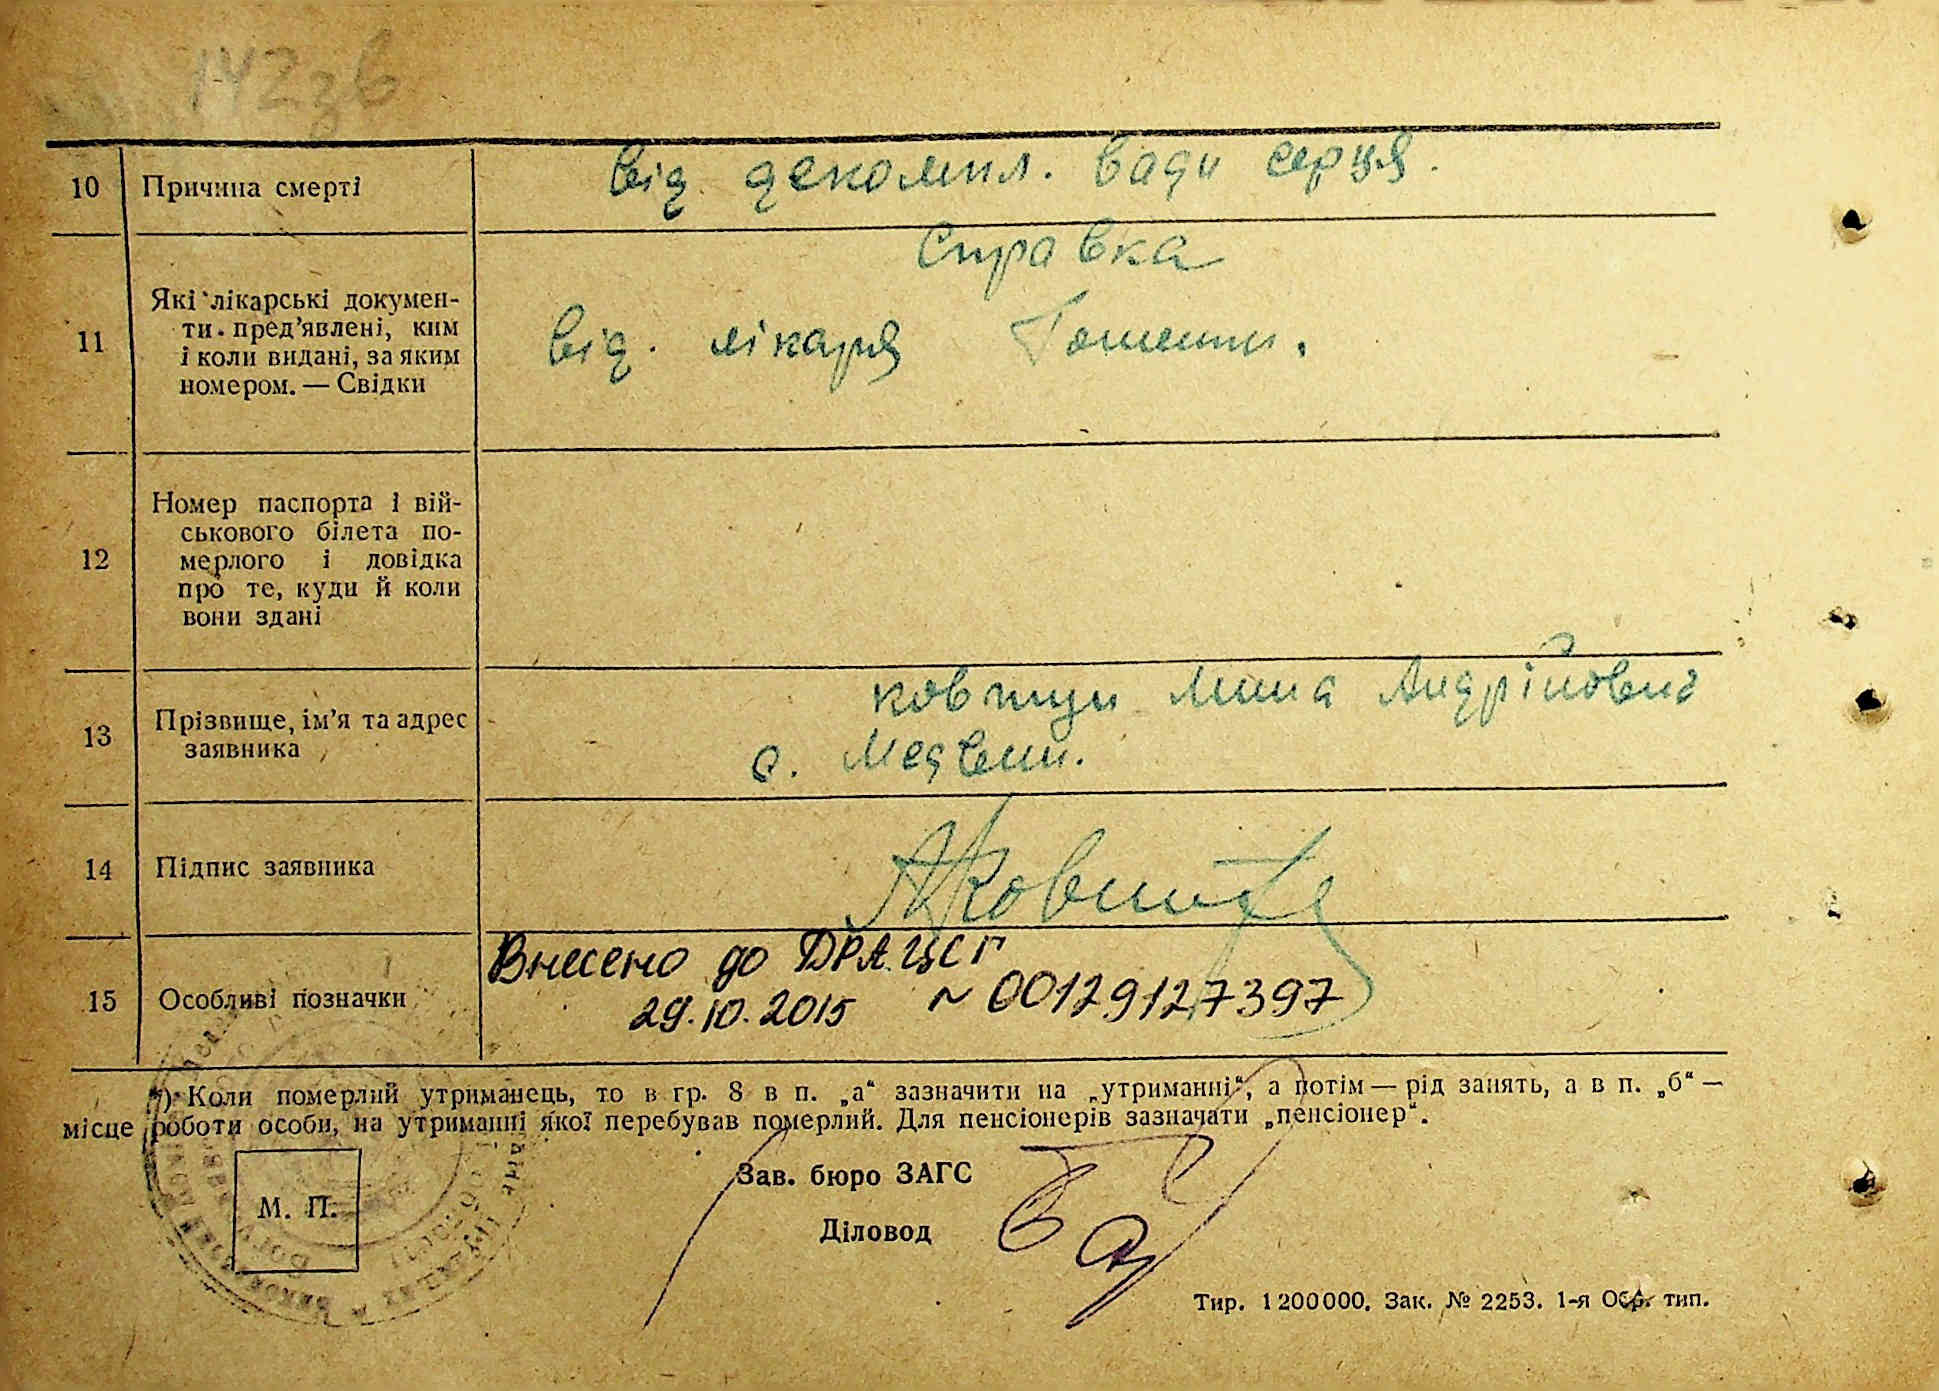 142зв
10 Причина смерті від. декомпл. вади серця.
Справка
11 Які лікарські докумен-
ти пред'явлені, ким
і коли видані, за яким
номером. — Свідки
від. лікаря
12 Номер паспорта і вій-
ськового білета по-
мерлого і довідка
про те, куди й коли
вони здані
13 Прізвище, ім'я та адрес
заявника
Андрійович
с.
14 Підпис заявника
15 Особливі позначки
Внесено до ДРАЦСГ
29.10.2015 ~ 00129127397
*) Коли померлий утриманець, то в гр. 8 в п. „а“ зазначити на „утриманні“, а потім — рід занять, а в п. „б“ —
місце роботи особи, на утриманні якої перебував померлий. Для пенсіонерів зазначати „пенсіонер“.
Зав. бюро ЗАГС
М. П.
Діловод
Тир. 1200000. Зак. № 2253. 1-я Обр. тип.